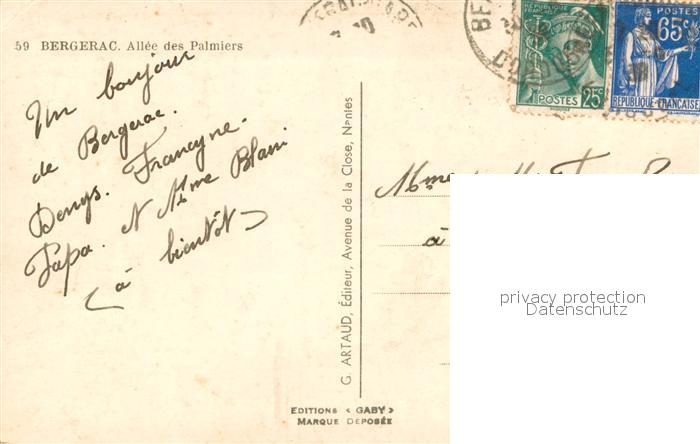 59 BERGERAC. Allée des Palmiers
Un bonjour
de Bergerac.
Denys. Francyne.
Papa. et Mme Blanc
à bientôt
G. ARTAUD, Éditeur, Avenue de la Close, Nantes
EDITIONS < GABY >
MARQUE DEPOSÉE
RÉPUBLIQUE FRANÇAISE
POSTES 25c
POSTES
65c
RÉPUBLIQUE-FRANÇAISE
Mme
à
privacy protection
Datenschutz